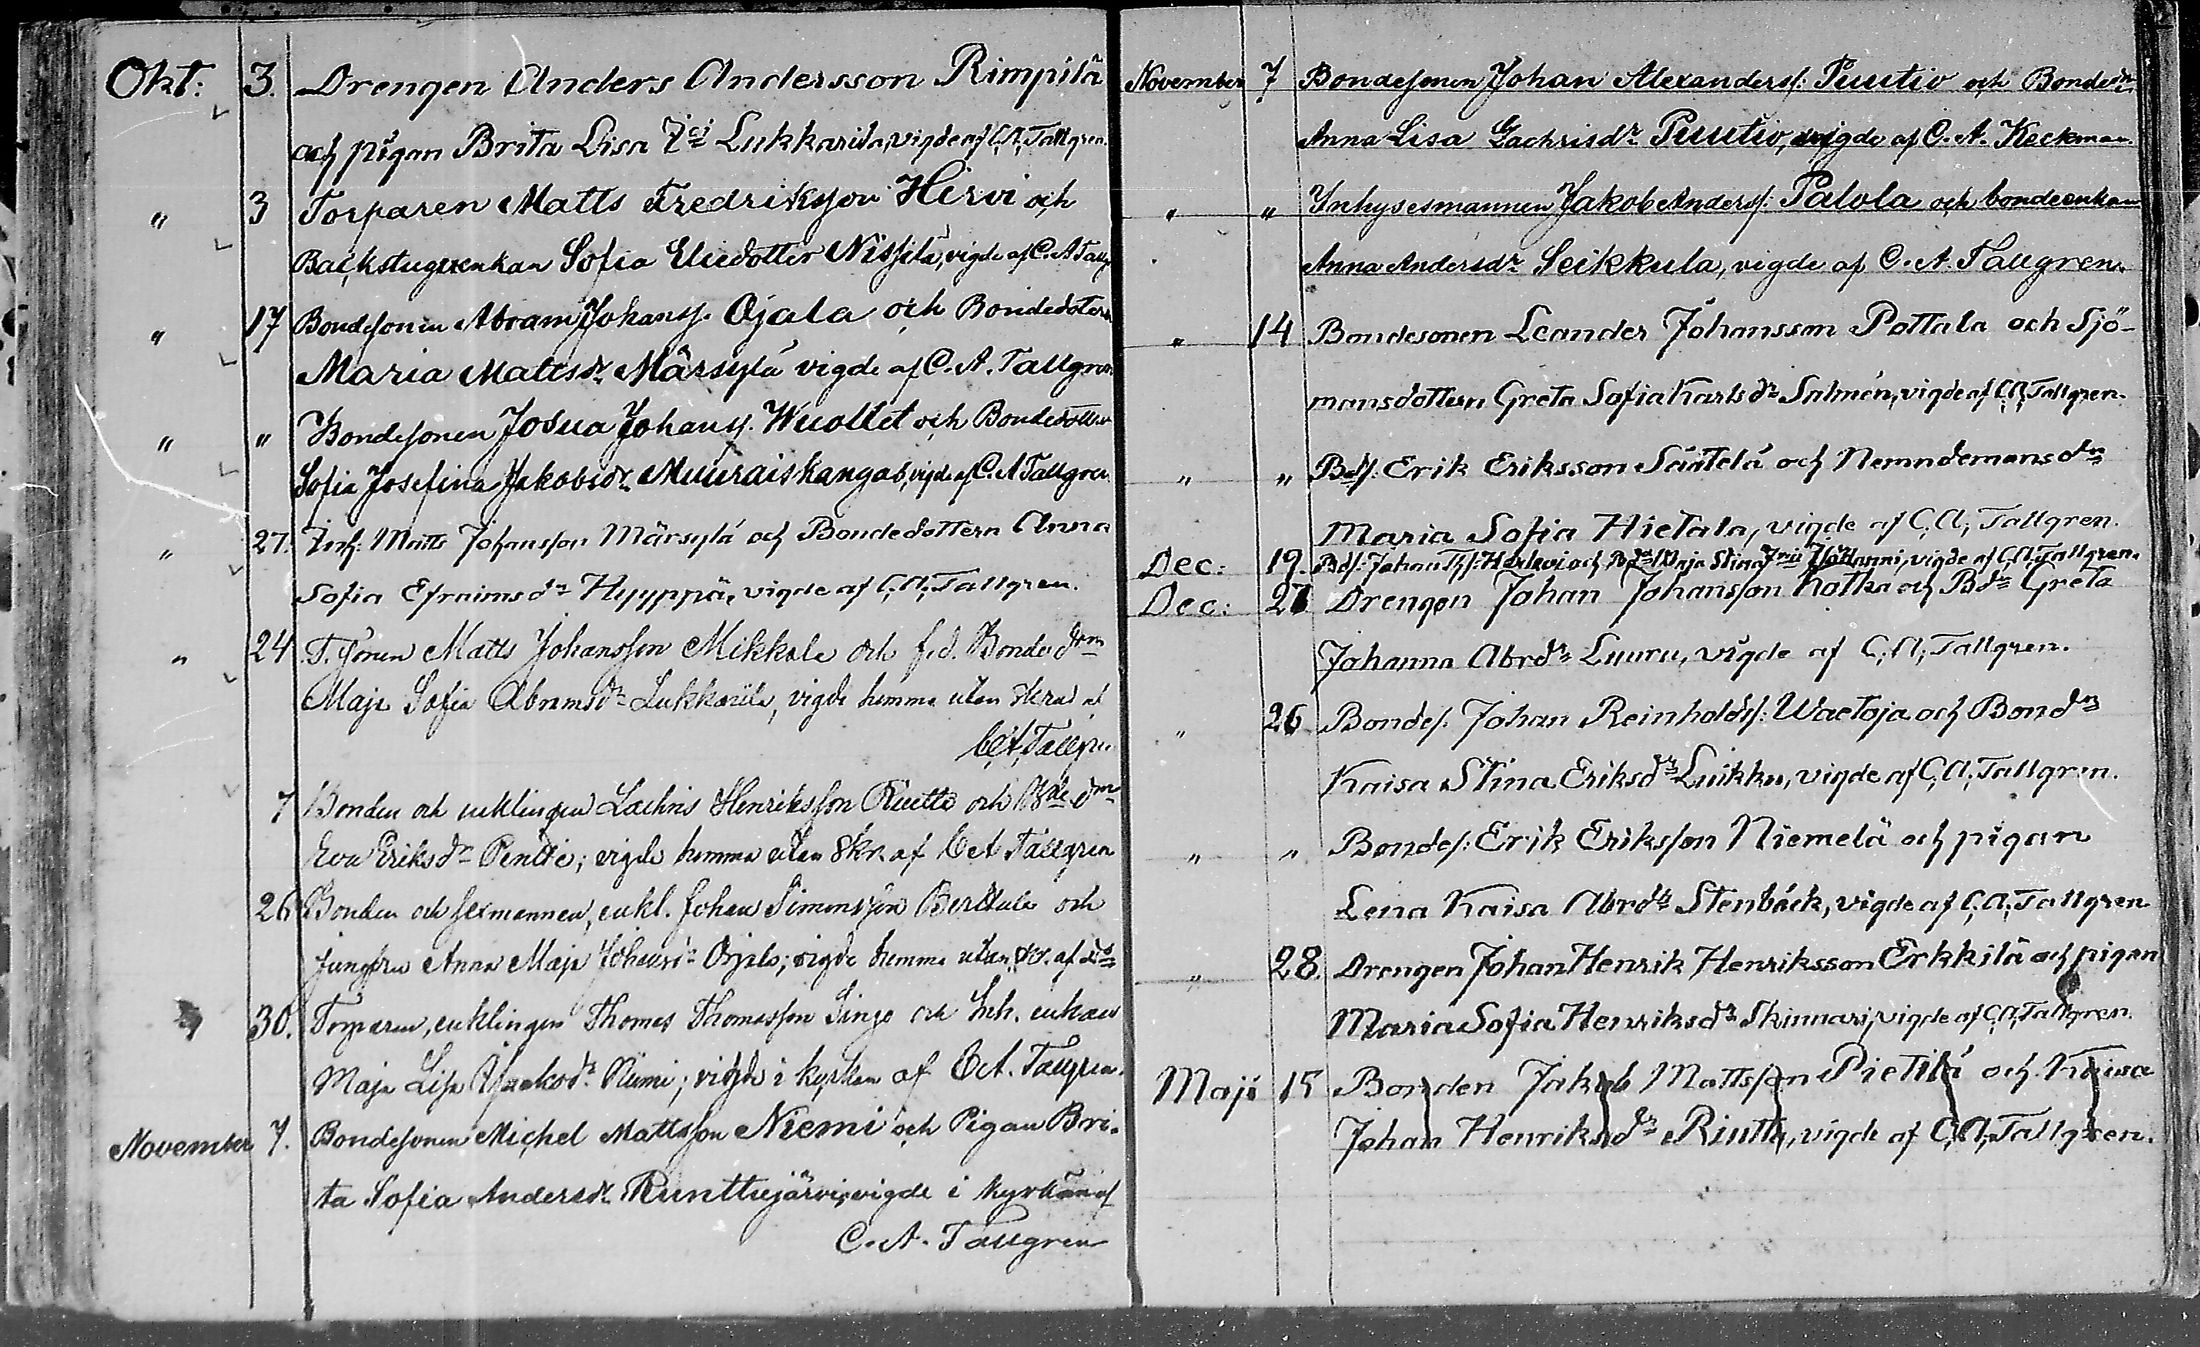 Okt: 3. Drengen Anders Andersson Rimpilä
och pigan Brita Lisa Zci Lukkarila, vigde af C. A. Tallgren.
" 3 Torparen Matts Fredriksson Hirvi och
Backstuguenkan Sofia Eliedotter Nissilä, vigde af C. A Tallgr
" 17 Bondesonen Abram Johanss. Ojala och Bondedotern
Maria Mattsdr Märsylä vigde af C. A. Tallgren.
" " Bondesonen Josua Johanss. Wuollet och Bondedottern
Sofia Josefina Jakobsdr Muuraiskangas, vigde af C. A Tallgren
" 27. Inh: Matts Johansson Märsylä och Bondedottern Anna
Sofia Efraimsdr Hyyppä, vigde af C. A. Tallgren.
" 24 T. sonen Matts Johansson Mikkola och f.d. Bondedrn
Maja Sofia Abramsdr Lukkarila, vigde hemma utan skrud af
C. A. Tallgren
7 Bonden och enklingen Zachris Henriksson Ruutti och Bde drn
Eva Eriksdr Penttie; vigde hemma utan skr. af C. A Tallgren
26 Bonden och sexmannen, enkl. Johan Simonsson Berttula och
jungfru Anna Maja Johansdr Ojala; vigde hemma utan skr. af Ds
30. Torparen, enklingen Thomas Thomasson Singo och Inh. enkan
Maja Lisa Jakobsdr Niemi; vigde i kyrkan af C. A. Tallgren.
November 7. Bondesonen Michel Mattsson Niemi och Pigan Bri-
ta Sofia Andersdr Runttujärvi, vigde i kyrkan af
C. A. Tallgren
November 7 Bondesonen Johan Alexanderss: Puutio och Bondedrn
Anna Lisa Zachrisdr Puutio, vigde af C. A. Keckman.
" " Ynhysesmannen Jakob Anderss: Palola och bondeenkan
Anna Andersdr Seikkula, vigde af C. A. Tallgren.
" 14 Bondesonen Leander Johansson Pottala och Sjö-
mansdottern Greta Sofia Karlsdr Salmén, vigde af C. A. Tallgren.
" " Bds: Erik Eriksson Säntelä och Nemndemansdrn
Maria Sofia Hietala, vigde af C. A. Tallgren.
Dec: 19. Bds: Johan Ths: Harlevi och Bdrn Maja Stina Jnii Ylitanni, vigde af C. A. Tallgren.
Dec: 27 Drengen Johan Johansson Kotka och Bdn Greta
Johanna Abrdr Luuru, vigde af C. A. Tallgren.
" 26 Bondes. Johan Reinholdss: Waetoja och Bondrn
Kaisa Stina Eriksdr Luikku, vigde af C. A. Tallgren.
" " Bondes: Erik Eriksson Niemelä och pigan
Lena Kaisa Abrdr Stenbäck, vigde af C. A. Tallgren
" 28. Drengen Johan Henrik Henriksson Erkkilä och pigan
Maria Sofia Henriksdr Skinnari, vigde af C. A. Tallgren.
Maji 15 Bonden Jakob Mattsson Pietilä och Kaisa
Johan Henriksdr Riutta, vigde af C. A. Tallgren.